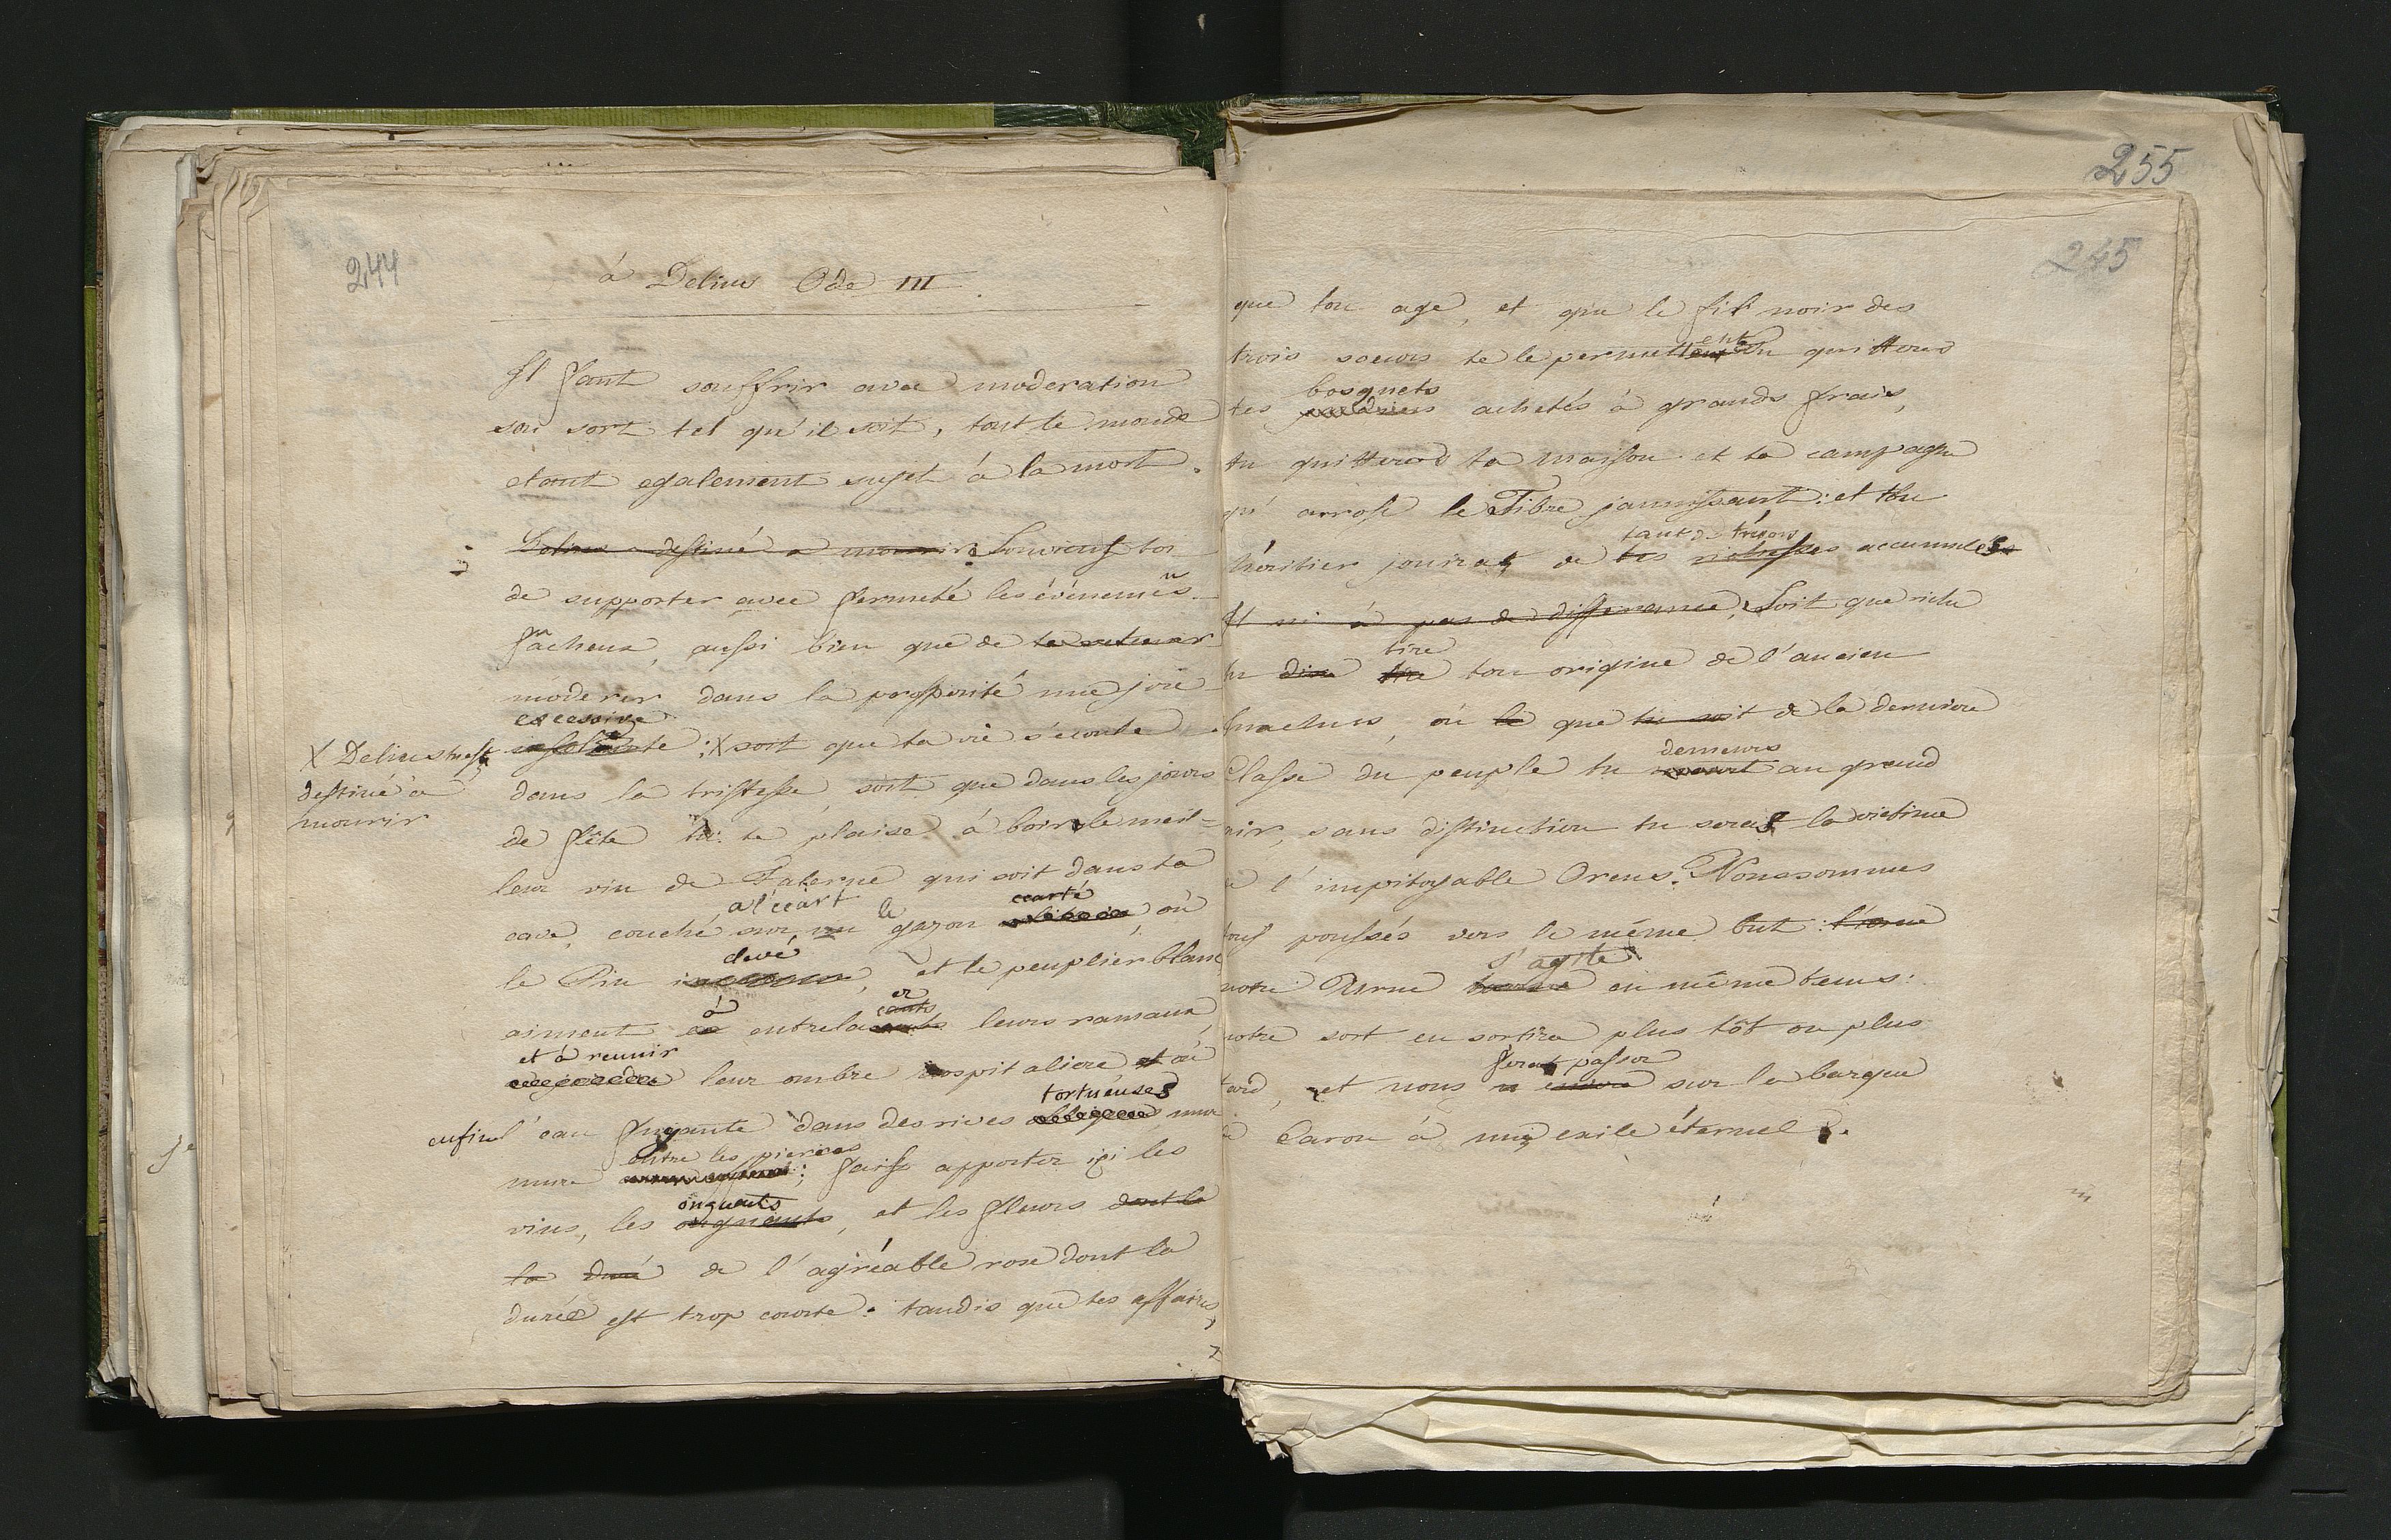 244
à Delius Ode III
Il faut souffrir avec moderation
son sort tel qu'il soit, tout le monde
etant egalement sujet à la mort.
Delius destiné a mourir. Souviens toi
de supporter avec fermeté les événemens
fâcheux, aussi bien que de
moderer dans la prosperité une joie
excessive
insolente ; X soit que ta vie s'écoule
X Delius tu est
destiné à
mourir
dans la tristesse, soit que dans les jours
de fête tu te plaise à boire le meil=
leur vin de Falerne qui soit dans ta
a l'écart le ecarté
cave, couché sur un gazon, où
elevé
le Pin, et le peuplier blanc
à er
aiment entrelacants leurs rameaux
et à reunir
leur ombre hospitaliere et où
tortueuses
enfin l'eau fuyante dans des rives mur
entre les pierres
mure ; faise apporter ici les
onguents
vins, les onguants, et les fleurs dont la
la duré de l'agréable rose dont la
durée est trop courte. tandis que tes affaires,
255
245
que ton age, et que le fil noir des
trois soeurs te le permettent tu quitteras
bosquets
tes achetés à grands frais,
tu quitteras ta maison et ta campagne
qu'arrose le Tibre jaunissant : et ton
tant de trésors
héritier jouira de tes richesses accumulés
Il ni à pas de differance, Soit que riche
tire
tu dise tire ton origine de l'ancien
Inachus, où le que tu soit de la derniere
demeures
Classe du peuple tu au grand
air, sans distinction tu seras la victime
de l'impitoyable Orcus. Nous sommes
tous poussés vers le même but : l'urne
s'agite
notre Urne en même tems :
notre sort en sortira plus tôt ou plus
ferat passer
tard, et nous sur la barque
de Caron à un exile éternel.